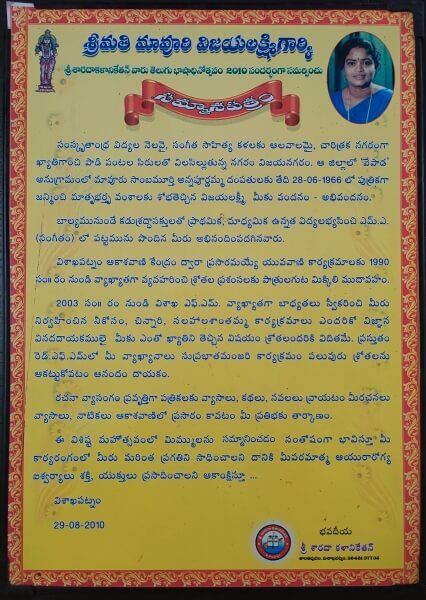 శ్రీమతి మావూరి విజయలక్ష్మిగార్కి
శ్రీ శారదాకళానికేతన్ వారు తెలుగు భాషాదినోత్సవం 2010 సందర్భంగా సమర్పించు
సన్మానపత్రం
సంస్కృతాంధ్ర విద్యల నెలవై, సంగీత సాహిత్య కళలకు ఆలవాలమై, చారిత్రక నగరంగా
ఖ్యాతిగాంచి పాడి పంటల సిరులతో విలసిల్లుతున్న నగరం విజయనగరం. ఆ జిల్లాలో 'వేపాడ'
అనుగ్రామంలో మావూరు సాంబమూర్తి అన్నపూర్ణమ్మ దంపతులకు తేది 28-06-1966 లో పుత్రికగా
జన్మించి మాతృభర్తృ వంశాలకు శోభతెచ్చిన విజయలక్ష్మీ మీకు వందన - అభివందనం."
బాల్యమునుండే కడుశ్రద్ధాసక్తులతో ప్రాథమిక, మాధ్యమిక ఉన్నత విద్యలభ్యసించి ఎమ్.ఎ.
(సంగీతం) లో పట్టమును పొందిన మీరు అభినందింపదగినవారు.
విశాఖపట్నం ఆకాశవాణి కేంద్రం ద్వారా ప్రసారమయ్యే యువవాణి కార్యక్రమాలకు 1990
సం॥ రం నుండి వ్యాఖ్యాతగా వ్యవహరించి శ్రోతల ప్రశంసలకు పాత్రులగుట మిక్కిలి ముదావహం.
2003 సం॥ రం నుండి విశాఖ ఎఫ్.ఎమ్. వ్యాఖ్యాతగా బాధ్యతలు స్వీకరించి మీరు
నిర్వహించిన నీకోసం, చిన్నారి, నలహాలశాంతమ్మ కార్యక్రమాలు ఎందరికో విజ్ఞాన
వినదదాయకములై మీకు ఎంతో ఖ్యాతిని తెచ్చిన విషయం శ్రోతలందరికి విదితమే. ప్రస్తుతం
రెడ్.ఎఫ్.ఎమ్‌లో మీ వ్యాఖ్యానాలు సుప్రభాతమంజరి కార్యక్రమం పలువురు శ్రోతలను
ఆకట్టుకోవటం ఆనందం దాయకం.
రచనా వ్యాసంగం ప్రవృత్తిగా పత్రికలకు వ్యాసాలు, కథలు, నవలలు వ్రాయటం మీరచనలు
వ్యాసాలు, నాటికలు ఆకాశవాణిలో ప్రసారం కావటం మీ ప్రతిభకు తార్కాణం.
ఈ విశిష్ట మహోత్సవంలో మిమ్ములను సమ్మానించడం సంతోషంగా భావిస్తూ మీ
కార్యరంగంలో మీరు మరింత ప్రగతిని సాధించాలని దానికి మీపరమాత్మ ఆయురారోగ్య
ఐశ్వర్యాలు శక్తి, యుక్తులు ప్రసాదించాలని ఆకాంక్షిస్తూ ...
విశాఖపట్నం
29-08-2010
భవదీయ
శ్రీ శారదా కళానికేతన్